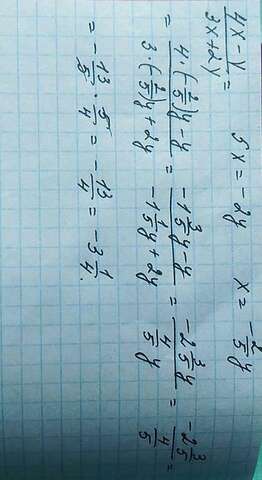 (4x-y)/(3x+2y) = 5x = -2y x = -2/5 y
= (4·(-2/5)y-y)/(3·(-2/5)y+2y) = (-1 3/5 y-y)/(-1 1/5 y+2y) = (-2 3/5 y)/(4/5 y) = (-2 3/5)/(4/5) =
= -13/5 · 5/4 = -13/4 = -3 1/4.